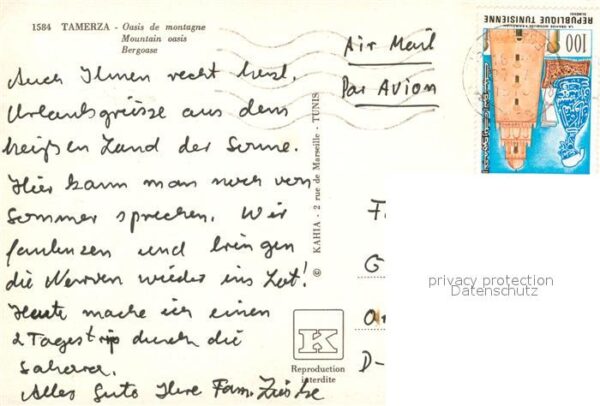 1584 TAMERZA - Oasis de montagne
Mountain oasis
Bergoase
Auch Ihnen recht herzl.
Urlaubsgrüsse aus dem
heißen Land der Sonne.
Hier kann man noch von
Sommer sprechen. Wir
faulenzen und bringen
die Nerven wieder ins Lot!
Heute mache ich einen
2 Tagestrip durch die
Sahara.
Alles Gute Ihre Fam.
© KAHIA - 2 rue de Marseille - TUNIS
K
Reproduction
interdite
Air Mail
Par Avion
REPUBLIQUE TUNISIENNE
100
F
G
D-
privacy protection
Datenschutz